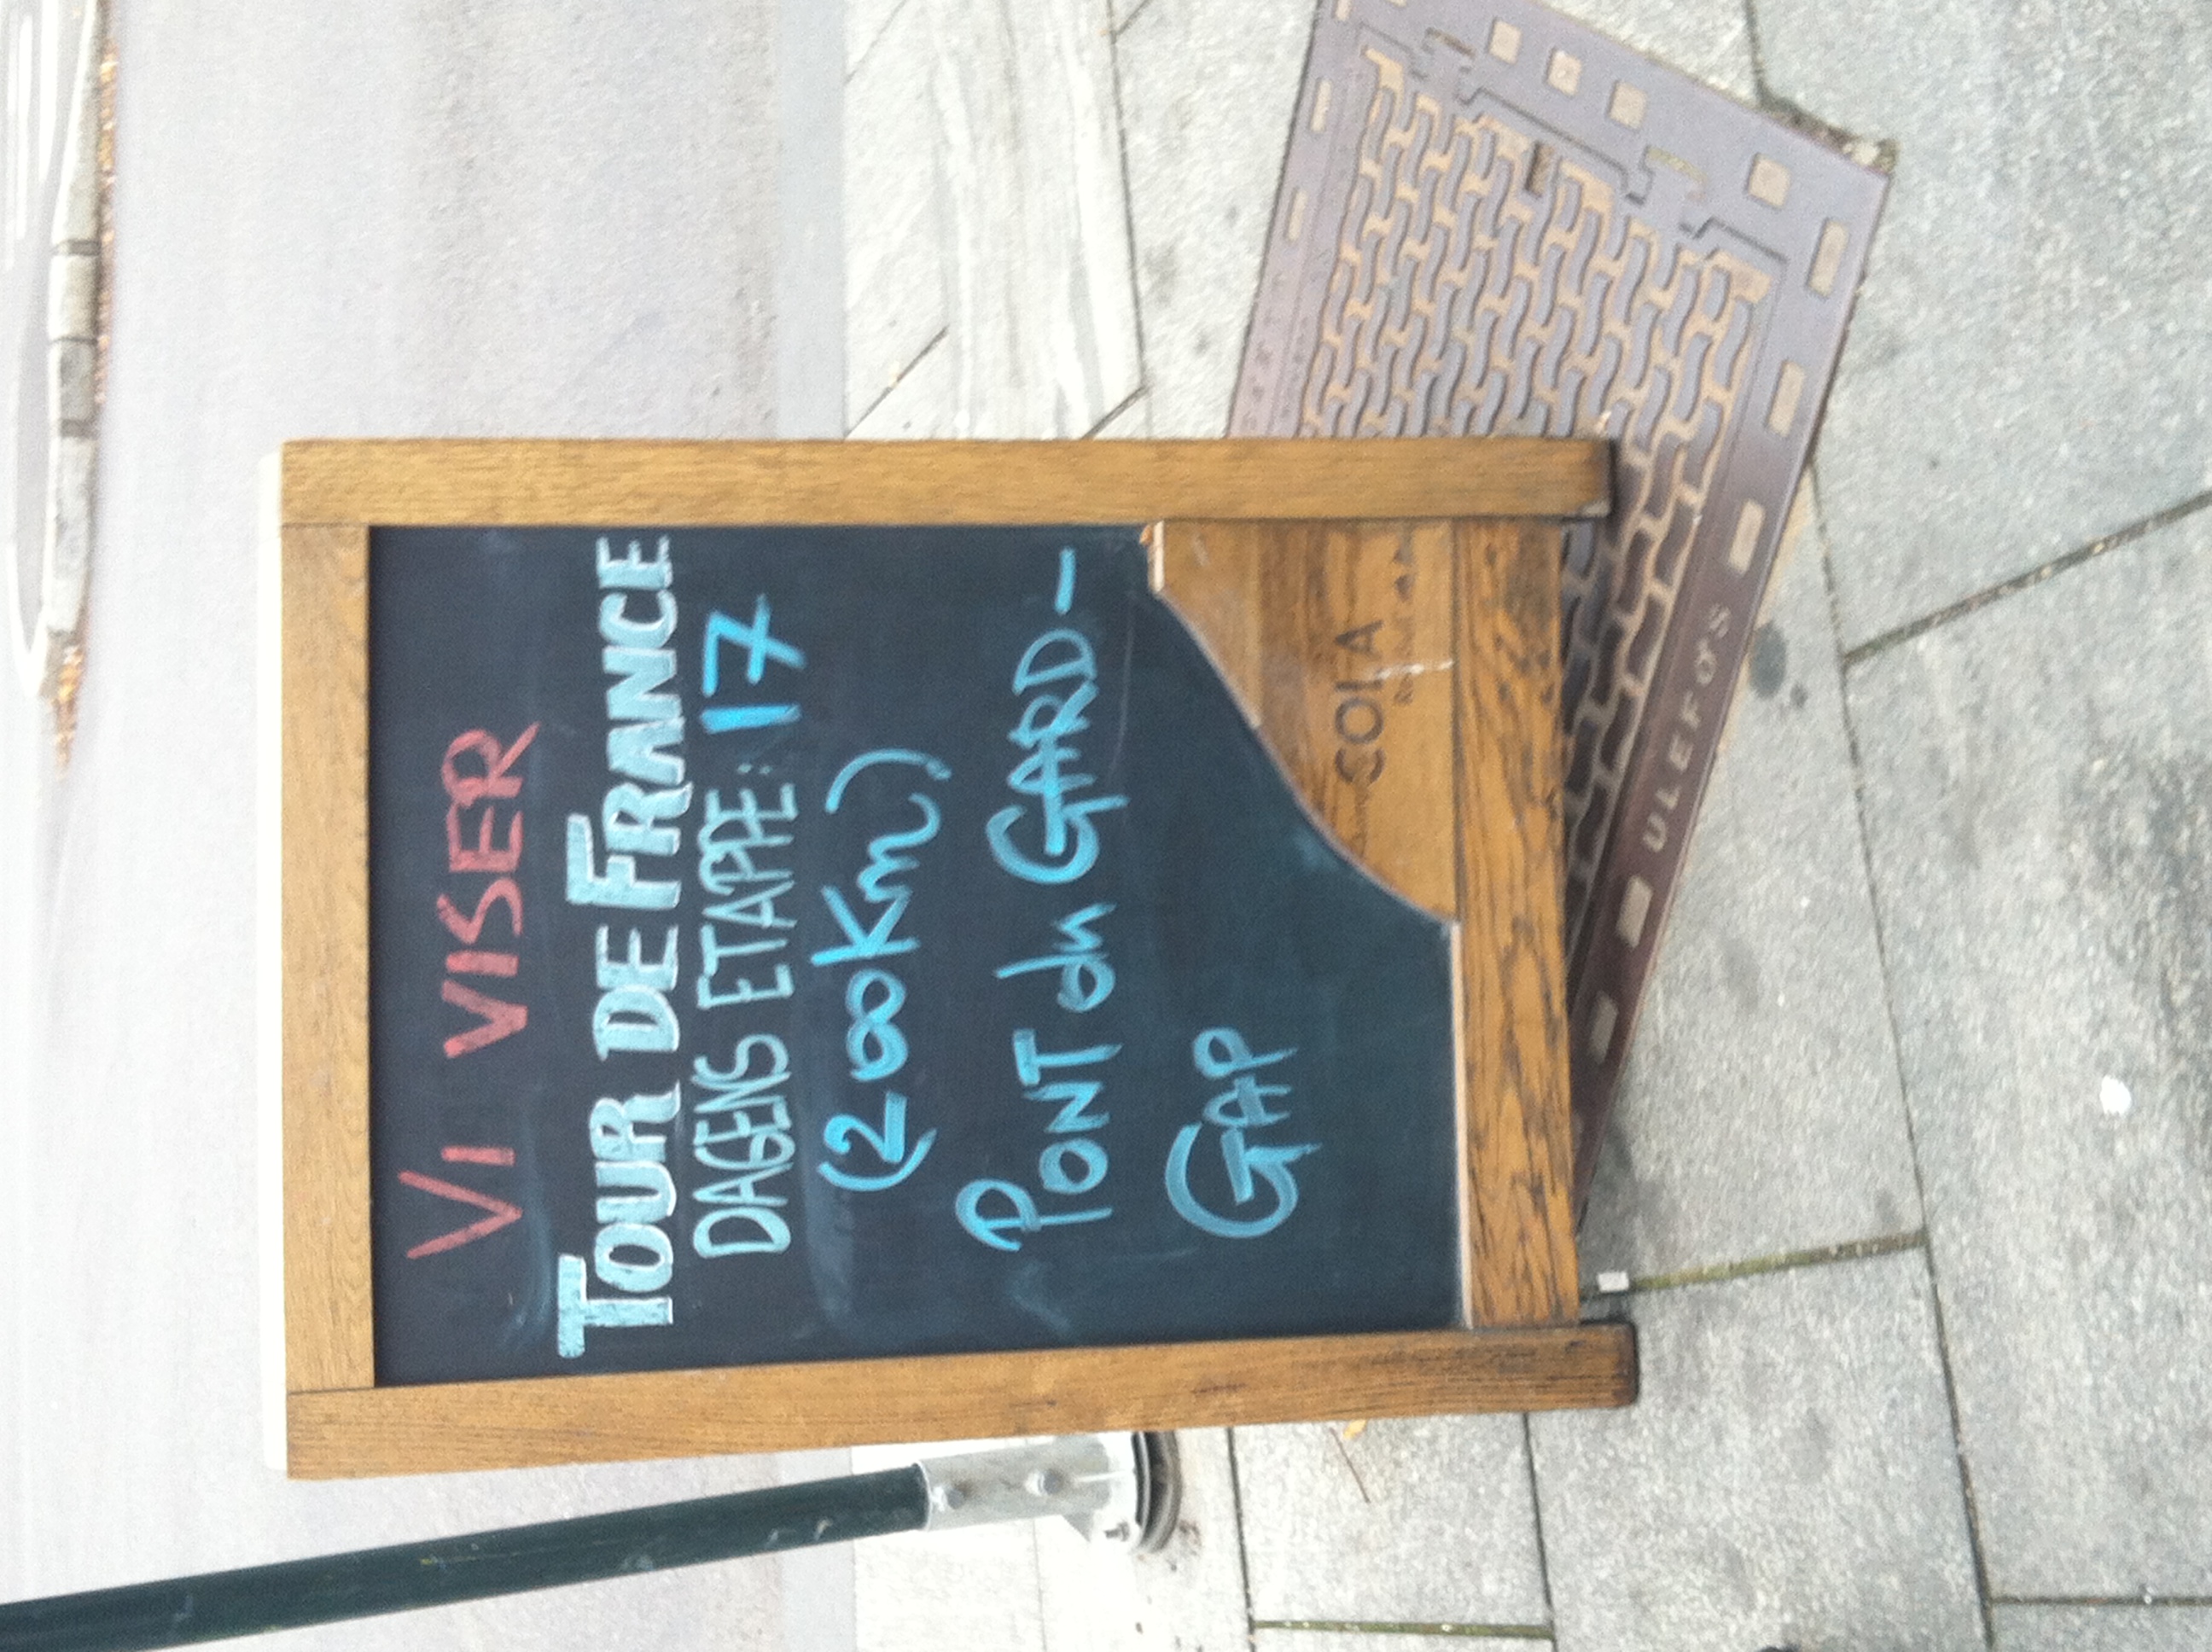 VI VISER
TOUR DE FRANCE
DAGENS ETAPPE: 17
(200Km)
PONT du GARD -
GAP
COLA
ULEFOS